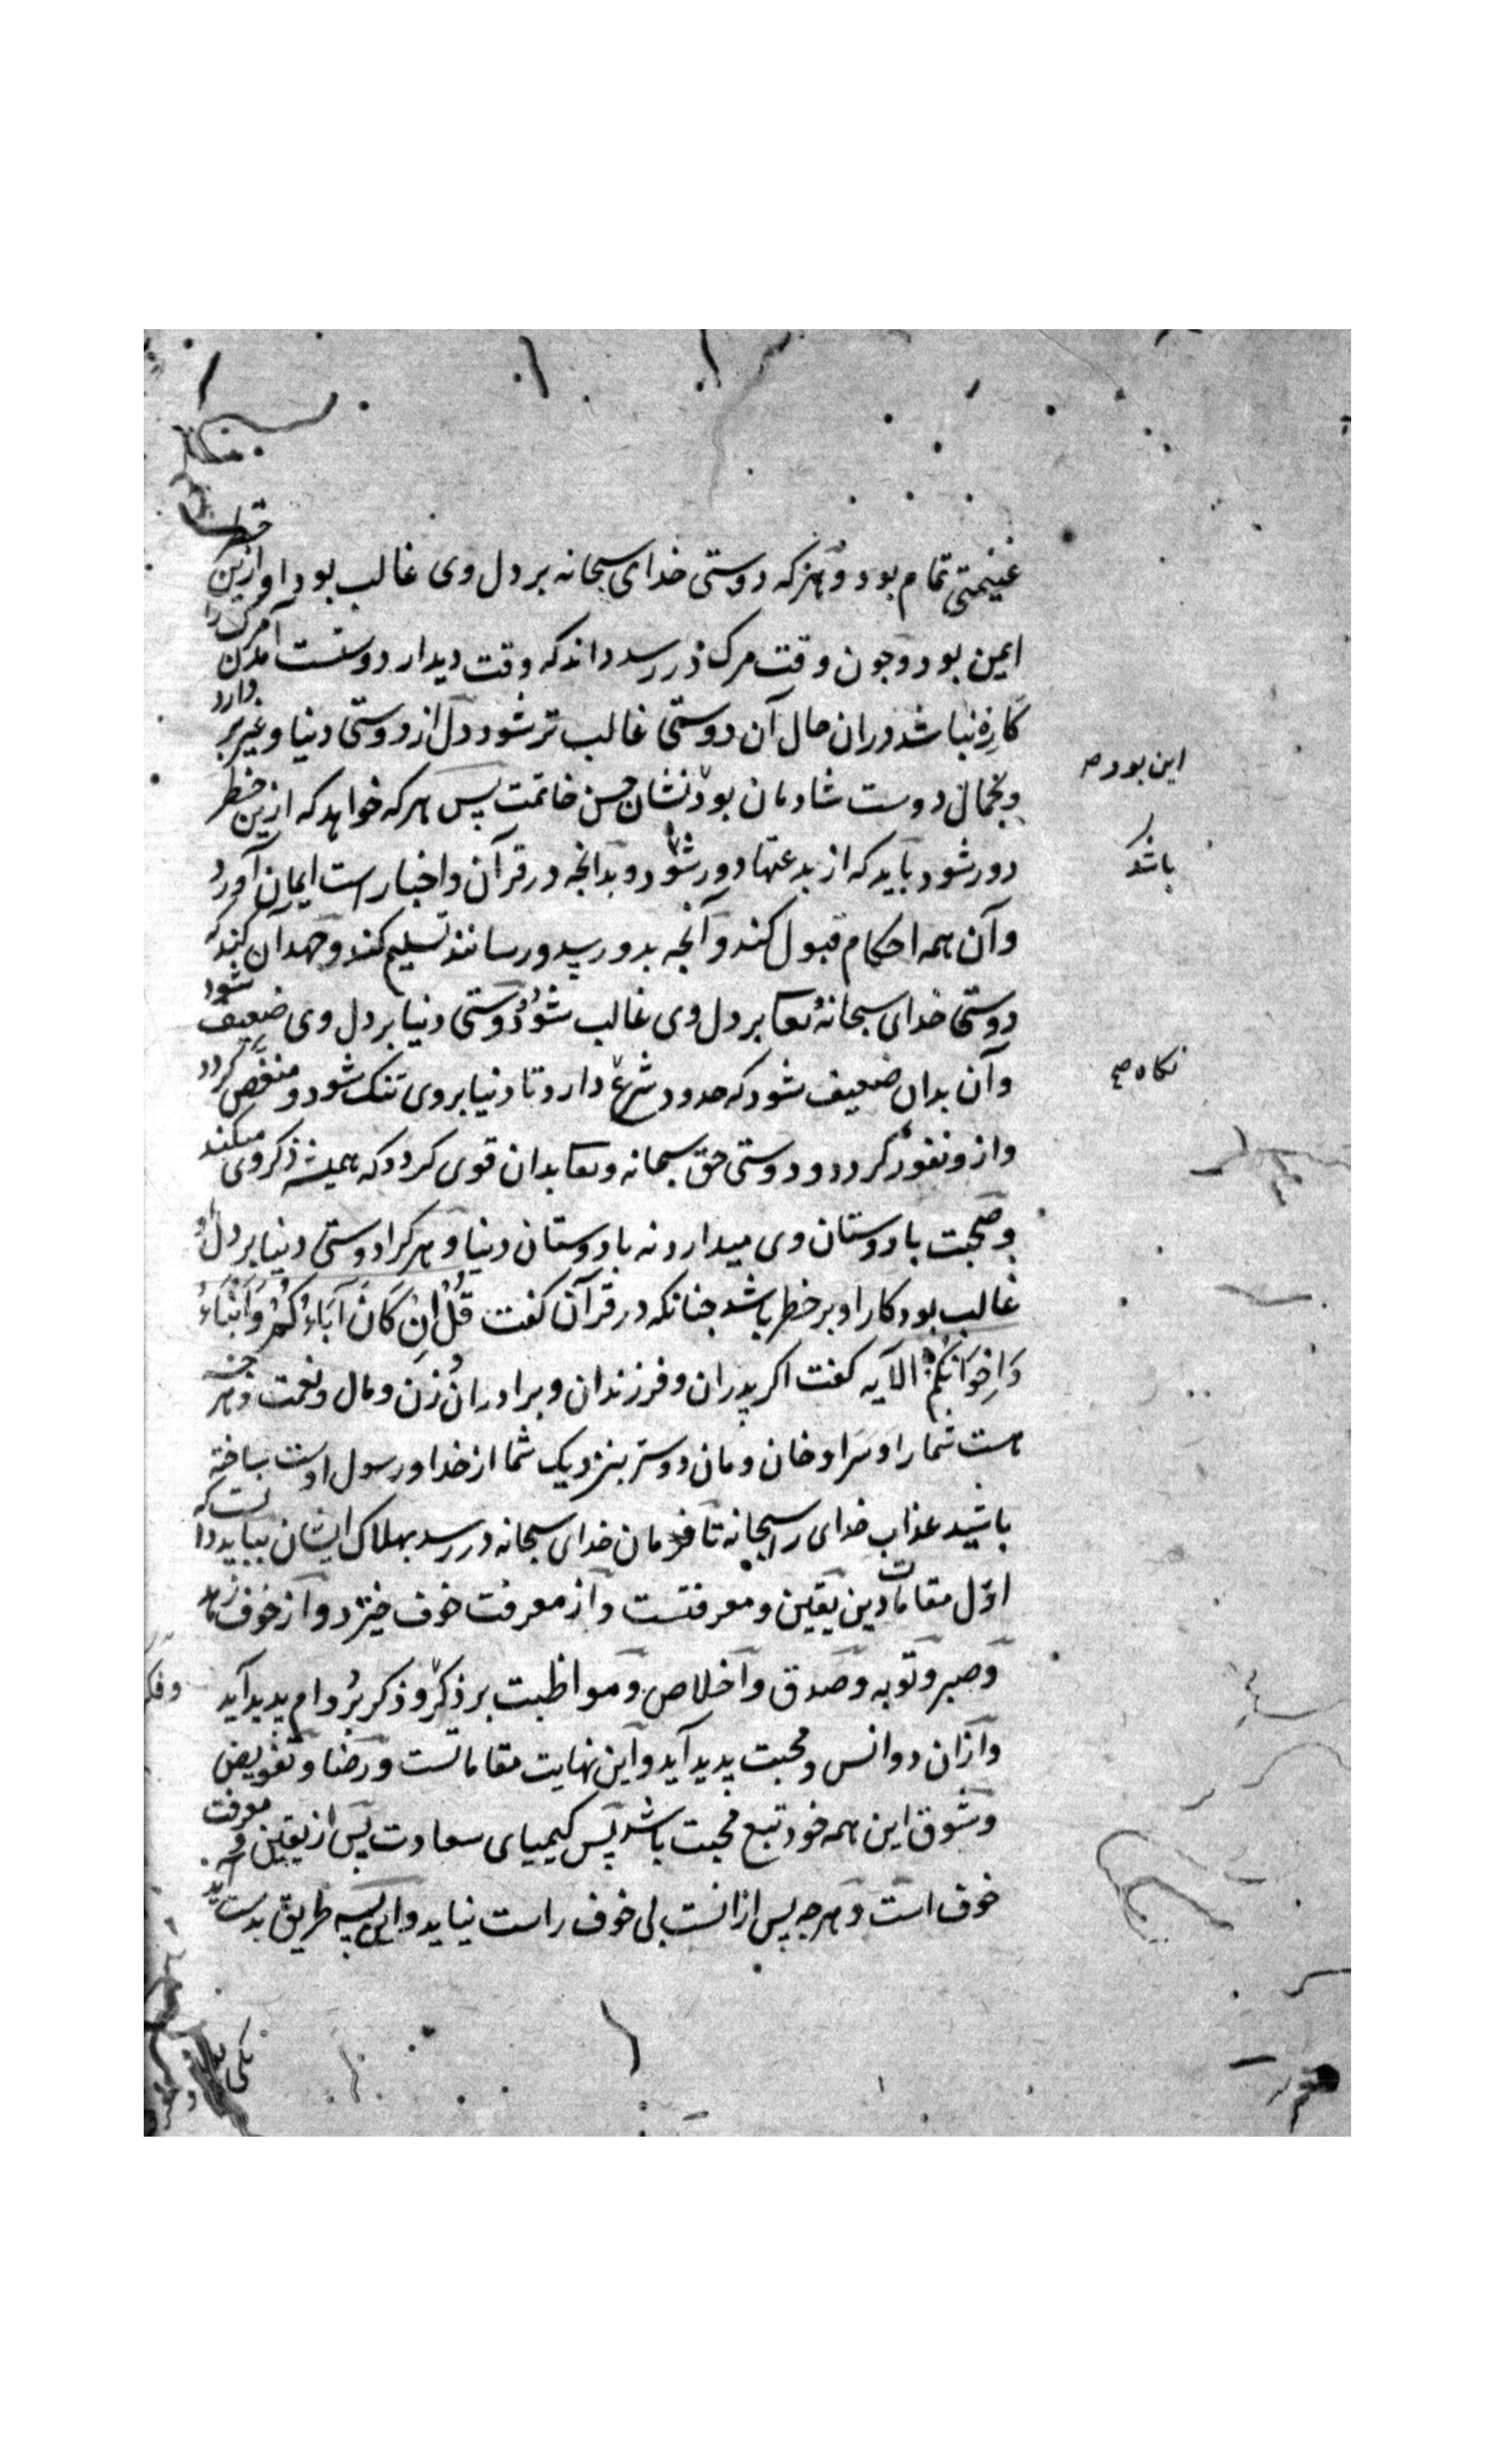 غنیمتی تمام بود و هر که دوستی خدای سبحانه بر دل وی غالب بود او ازین خطر
ایمن بود و چون وقت مرک در رسد داند که وقت دیدار دوستست آمدن مرک را
کاره نباشد دران حال آن دوستی غالب تر شود دل از دوستی دنیا و غیر بر دارد
و بجمال دوست شادمان بود نشان حسن خاتمت پس هر که خواهد که ازین خطر
این بود
دور شود باید که از بدعتها دور شود و بدانچه در قرآن و اخبار است ایمان آورد
باشد
وآن همه احکام قبول کند و آنچه بدو رسد و رسانند تسلیم کند و جهد آن کند که
دوستی خدای سبحانه و تعا بر دل وی غالب شود و دوستی دنیا بر دل وی ضعیف شود
وآن بدان ضعیف شود که حدود شرع دارد تا دنیا بروی تنک شود و منغص کردد
نکاه صح
وازو نفور کردد و دوستی حق سبحانه و تعا بدان قوی کردد که همیشه ذکر وی میکند
و صحبت با دوستان وی میدارد نه با دوستان دنیا و هر کرا دوستی دنیا بر دل
غالب بود کار او بر خطر باشد چنانکه در قرآن کفت قُل اِن کَانَ آبَاءُکُم وَاَبْنَاءُ
وَاِخْوَانُکُم الآیه کفت اکر پدران و فرزندان و برادران و زن و مال و نعمت و هر چه
هست شما را و سرا و خان و مان دوستر بنزدیک شما از خدا و رسول اوست ساخته
باشید عذاب خدای را سبحانه تا فرمان خدای سبحانه در رسد بهلاک ایشان بباید دانست که
اوّل مقامات دین یقین و معرفتست و از معرفت خوف خیزد و از خوف زهد
و صبر و توبه و صدق و اخلاص و مواظبت بر ذکر و ذکر بر دوام پدید آید
وفکر
و ازان دو انس و محبت پدید آید و این نهایت مقاماتست و رضا و تفویض
و شوق این همه خود تبع محبت باشد پس کیمیای سعادت پس از یقین و معرفت
خوف است و هر چه پس ازانست بی خوف راست نیاید و این بسه طریق بدست آید